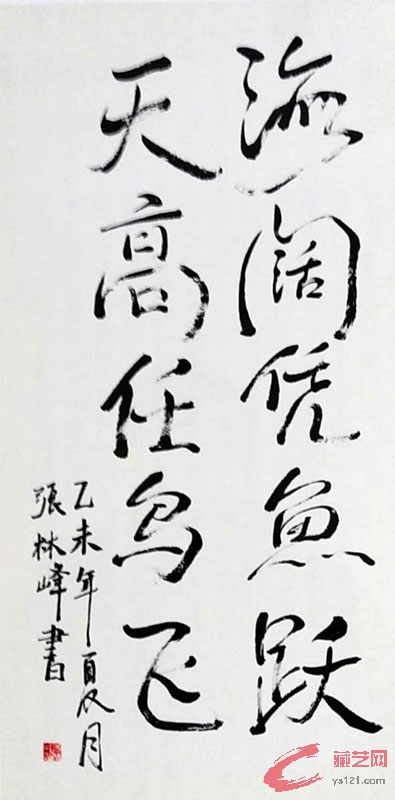 海阔凭鱼跃
天高任鸟飞
乙未年夏月
張林峰書
藏艺网
ys121.com